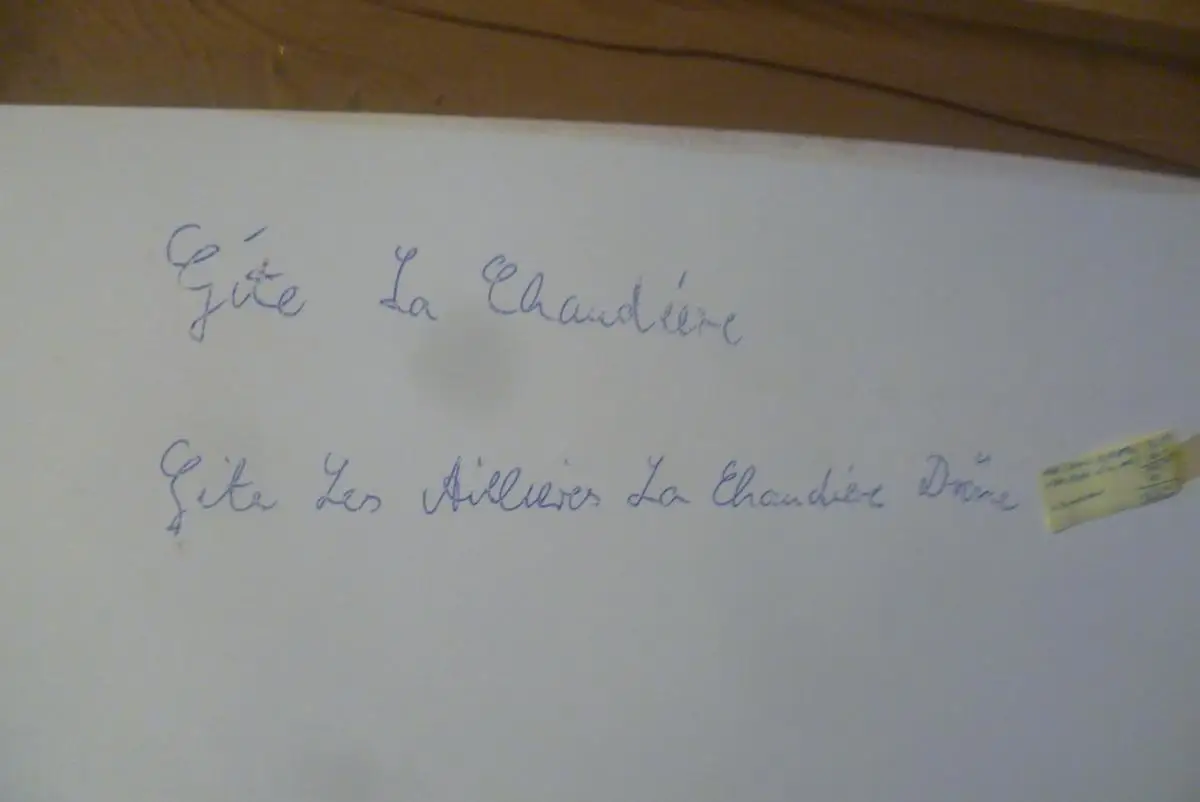 Gíte La Chaudiére
Gite Les Aillières La Chaudière Drôme